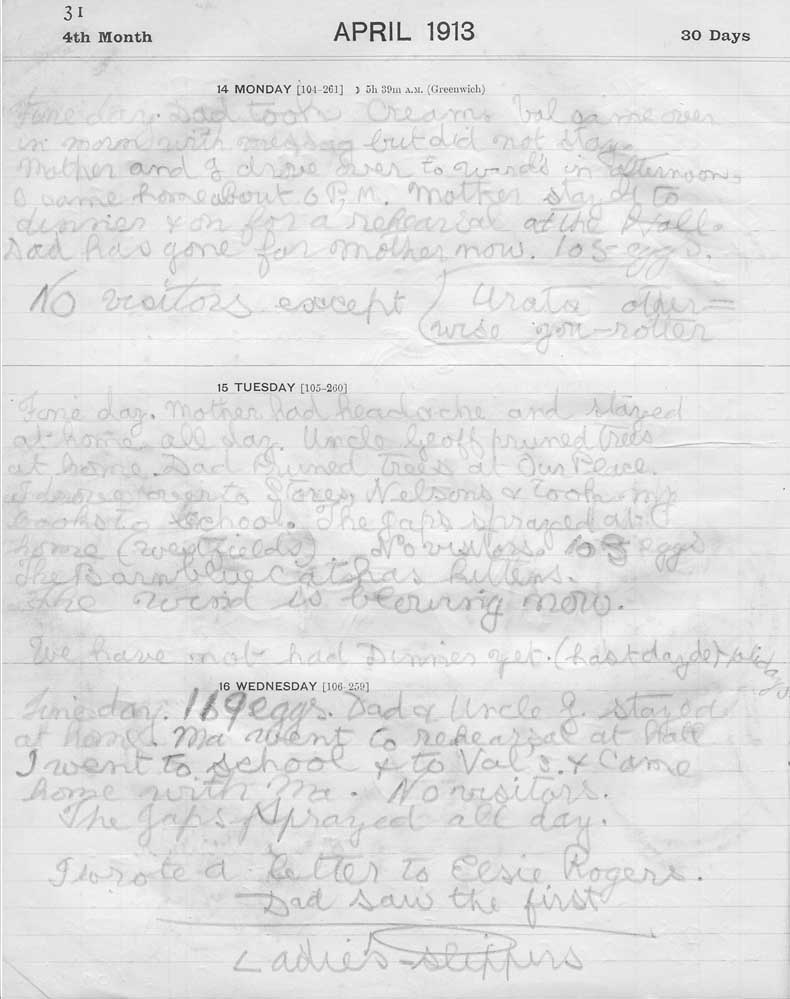 31
4th Month APRIL 1913 30 Days
14 MONDAY [104-261] ☽ 5h 39m A.M. (Greenwich)
Fine day. Dad took Cream. Val came over
in morn with messag but did not stay.
Mother and I drove over to Wards in afternoon.
I came home about 6 P.M. Mother stayed to
dinner & on for a rehearsal at the Hall.
Dad has gone for mother now. 105 eggs.
No visitors except Urata other=
wise you-rotter
15 TUESDAY [105-260]
Fine day. Mother had headache and stayed
at home all day. Uncle Geoff pruned trees
at home. Dad Pruned trees at Our Place.
I drove over to Stores, Nelsons & took my
books to school. The Japs sprayed at
home (westfields). No visitors. 105 eggs
The Barn blue Cat has kittens.
The wind is blowing now.
We have not had Dinner yet. (Last day of holidays
16 WEDNESDAY [106-259]
Fine day. 119 eggs. Dad & Uncle G. stayed
at home. Ma went to rehearsal at hall
I went to school & to Val's. & Came
home with Ma. No visitors.
The Japs sprayed all day.
I wrote a letter to Elsie Rogers.
Dad saw the first
Ladies-slippers